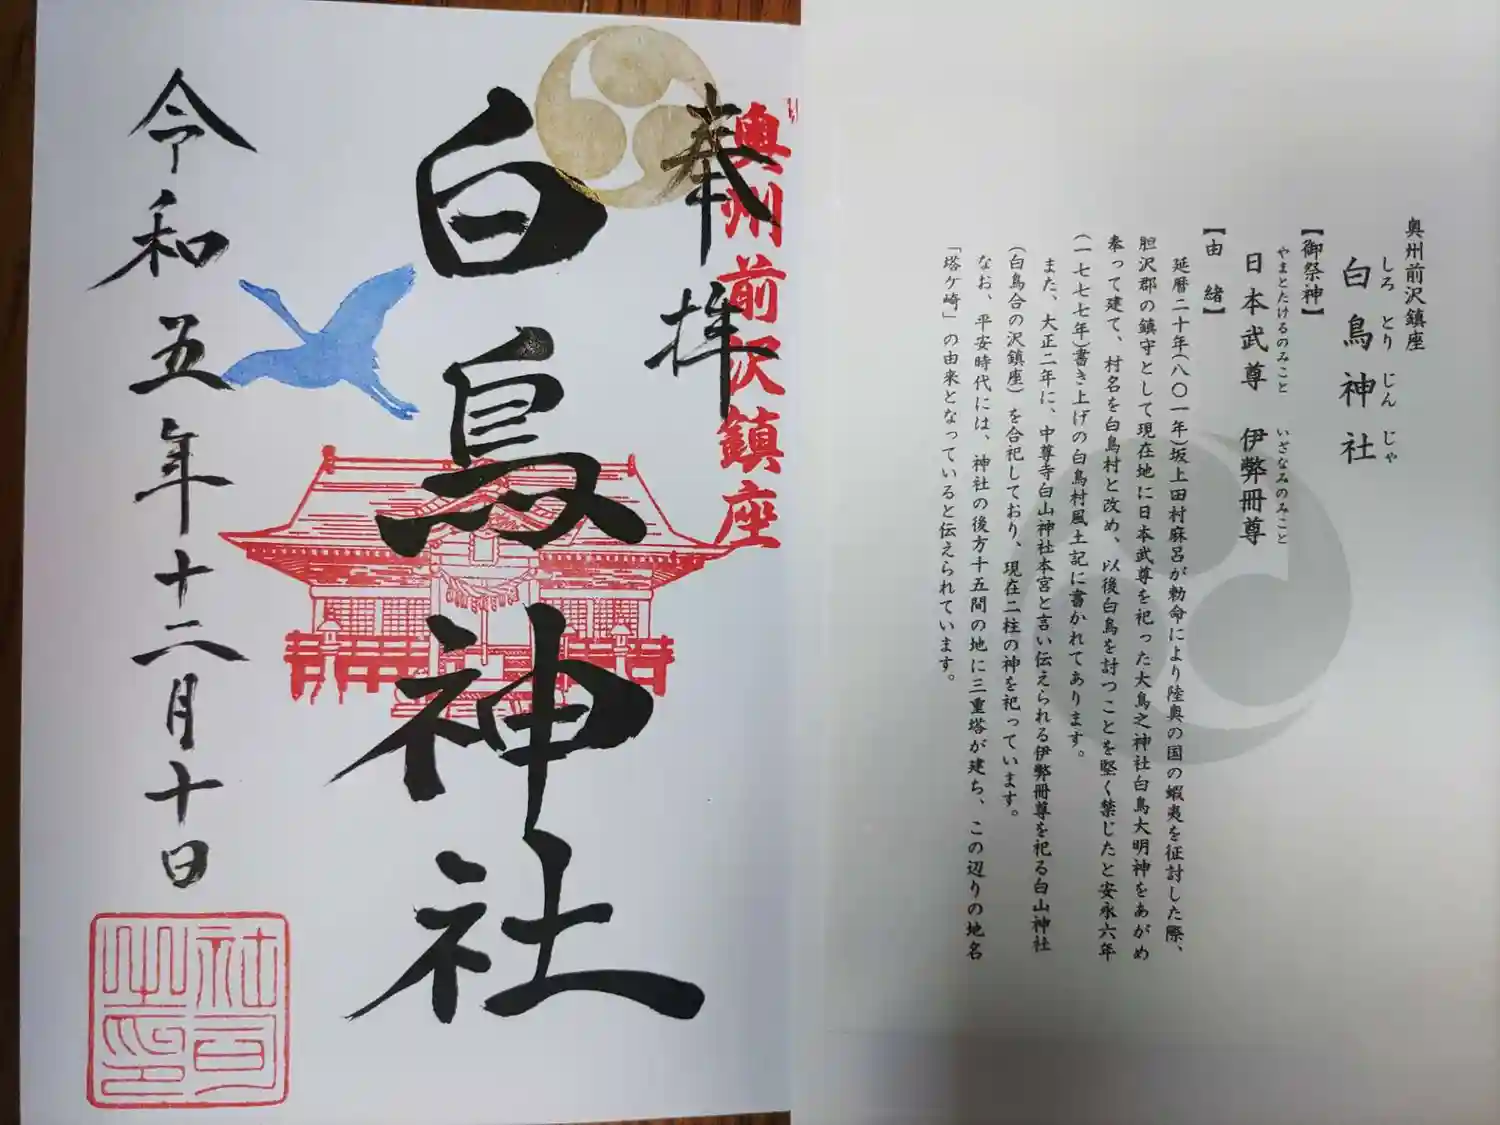 奥州前沢鎮座
奉拝
白鳥神社
令和五年十二月十日
社司之印
奥州前沢鎮座
白鳥神社
しろとりじんじゃ
【御祭神】
日本武尊　伊弊冊尊
やまとたけるのみこと　いざなみのみこと
【由緒】
延暦二十年(八〇一年)坂上田村麻呂が勅命により陸奥の国の蝦夷を征討した際、
胆沢郡の鎮守として現在地に日本武尊を祀った大鳥之神社白鳥大明神をあがめ
奉って建て、村名を白鳥村と改め、以後白鳥を討つことを堅く禁じたと安永六年
(一七七七年)書き上げの白鳥村風土記に書かれてあります。
また、大正二年に、中尊寺白山神社本宮と言い伝えられる伊弊冊尊を祀る白山神社
(白鳥合の沢鎮座)を合祀しており、現在二柱の神を祀っています。
なお、平安時代には、神社の後方十五間の地に三重塔が建ち、この辺りの地名
「塔ケ崎」の由来となっていると伝えられています。